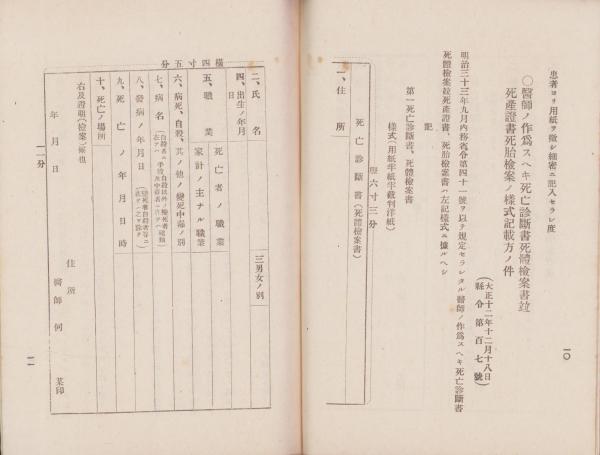 患者ヨリ用紙ヲ徴シ細密ニ記入セラレ度
〇醫師ノ作爲スヘキ死亡診斷書死體檢案書竝
死產證書死胎檢案ノ樣式記載方ノ件
(大正十二年十二月十八日
縣令第百七號)
明治三十三年九月內務省令第四十一號ヲ以テ規定セラレタル醫師ノ作爲スヘキ死亡診斷書
死體檢案書竝死產證書、死胎檢案書ハ左記樣式ニ據ルヘシ
記
第一死亡診斷書、死體檢案書
樣式(用紙半紙半截判洋紙)
縱六寸三分
死亡診斷書(死體檢案書)
一、住所
一〇
橫四寸五分
二、氏名
三男女ノ別
四、出生ノ年月日
五、職業
死亡者ノ職業
家計ノ主ナル職業
六、病死、自殺、其ノ他ノ變死中毒ノ別
七、病名
八、發病ノ年月日
九、死亡ノ年月日時
十、死亡ノ場所
右及證明(檢案)候也
年月日
住所
醫師何某印
二分
一一